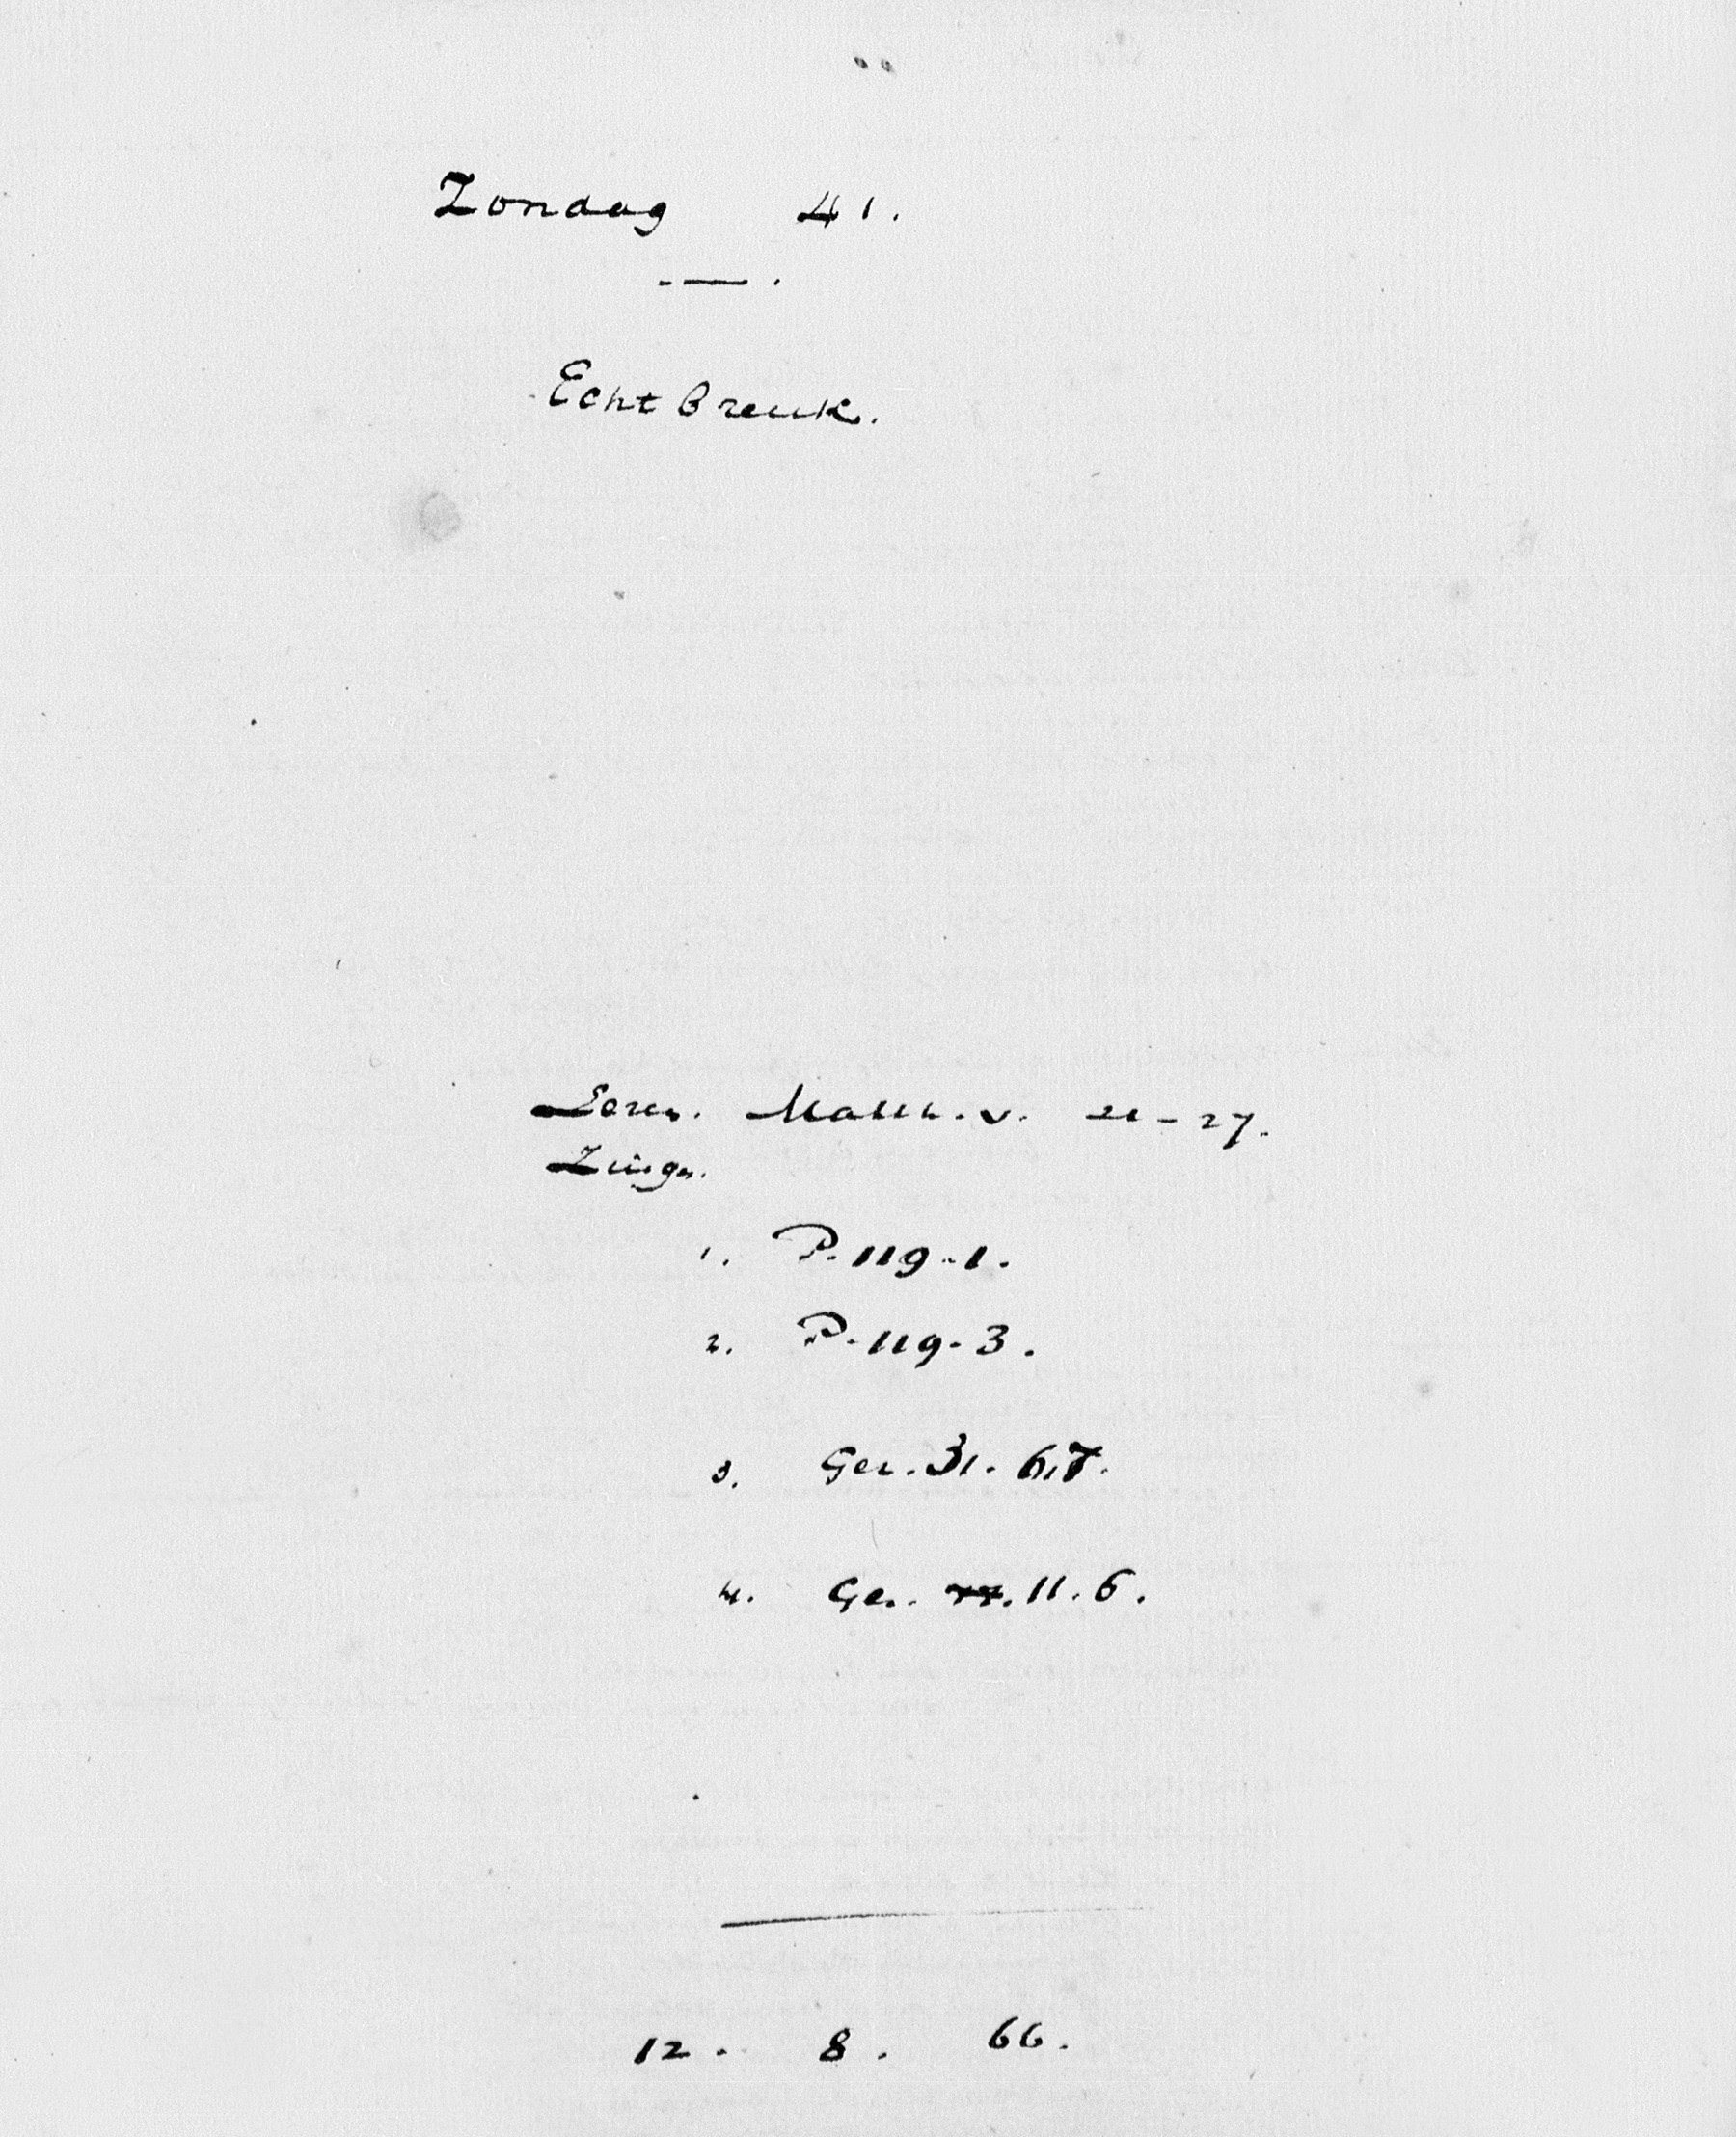 Zondag 41.
Echtbreuk.
Lezen. Matth. V. 21-27.
Zingen.
1. P. 119-1.
2. P. 119-3.
3. Gez. 31. 6,7.
4. Gez. 11. 6.
12. 8. 66.